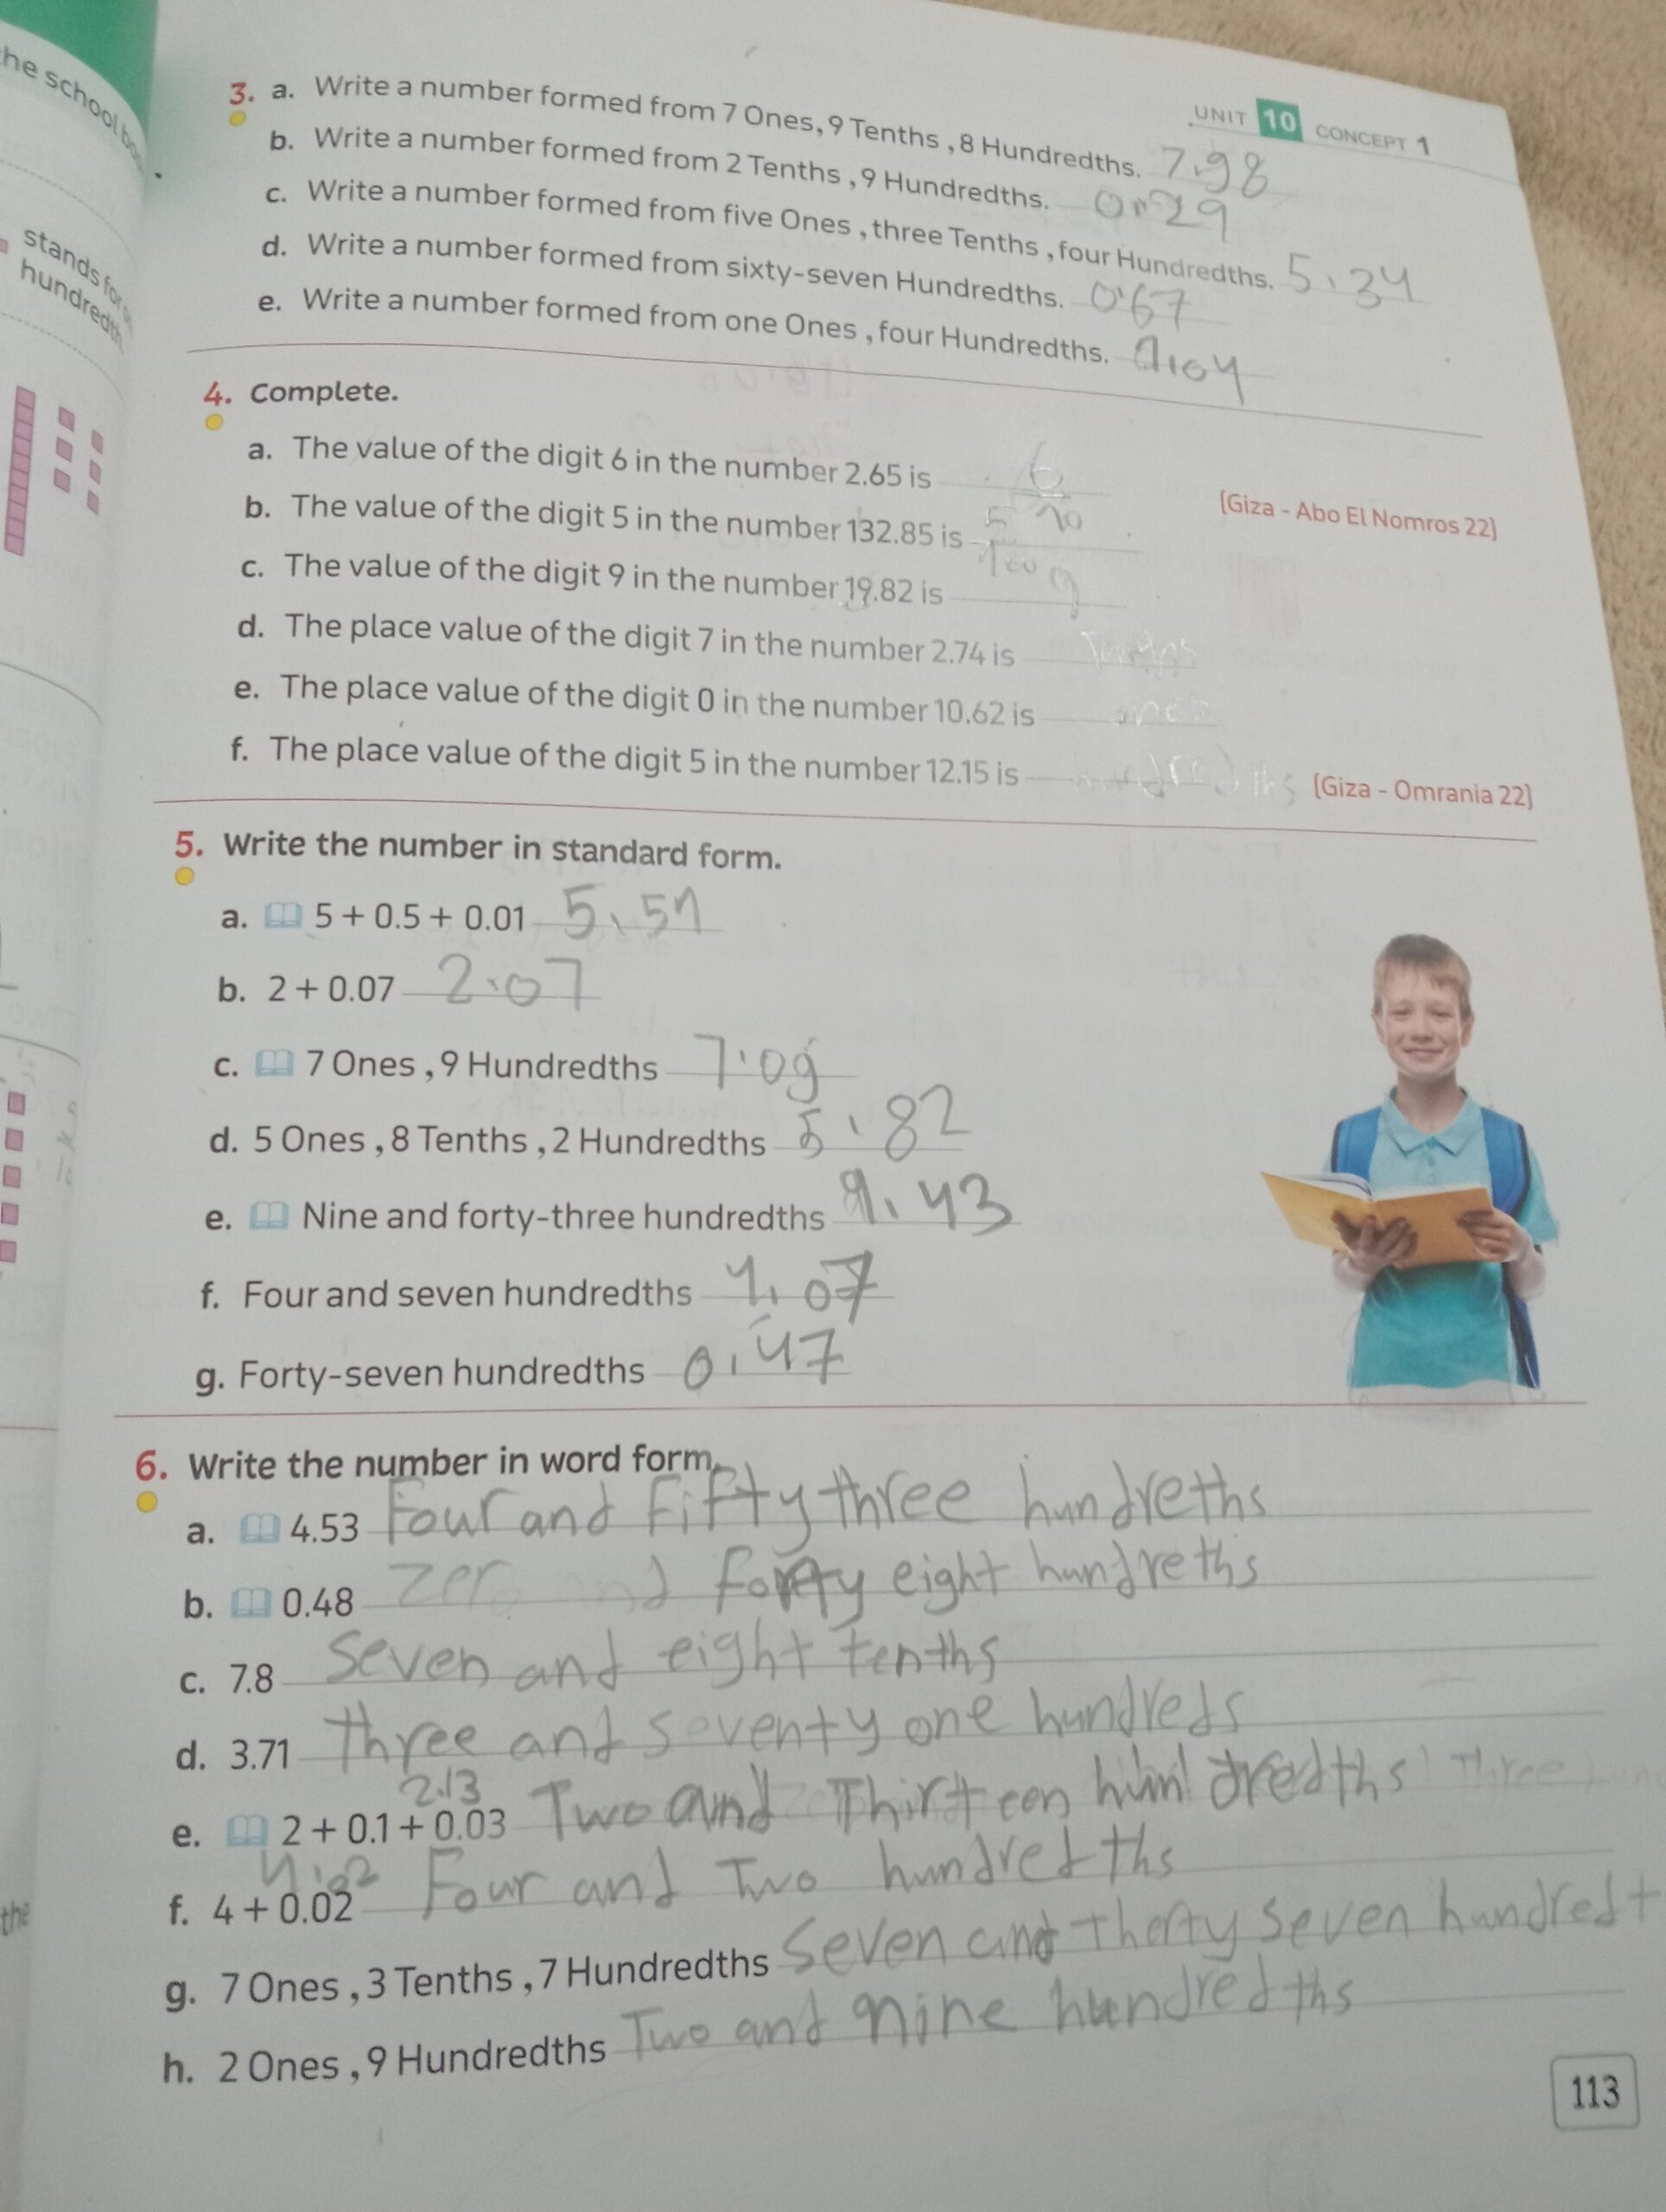 he school bo
stands for a
hundredth
UNIT 10 CONCEPT 1
3. a. Write a number formed from 7 Ones, 9 Tenths , 8 Hundredths. 7.98
b. Write a number formed from 2 Tenths , 9 Hundredths. 0.29
c. Write a number formed from five Ones , three Tenths , four Hundredths. 5.34
d. Write a number formed from sixty-seven Hundredths. 0.67
e. Write a number formed from one Ones , four Hundredths. 1.04
4. Complete.
a. The value of the digit 6 in the number 2.65 is 6/10 [Giza - Abo El Nomros 22]
b. The value of the digit 5 in the number 132.85 is 5/100
c. The value of the digit 9 in the number 19.82 is 9
d. The place value of the digit 7 in the number 2.74 is
e. The place value of the digit 0 in the number 10.62 is ones
f. The place value of the digit 5 in the number 12.15 is hundredths [Giza - Omrania 22]
5. Write the number in standard form.
a. 5 + 0.5 + 0.01 5.51
b. 2 + 0.07 2.07
c. 7 Ones , 9 Hundredths 7.09
d. 5 Ones , 8 Tenths , 2 Hundredths 5.82
e. Nine and forty-three hundredths 9.43
f. Four and seven hundredths 4.07
g. Forty-seven hundredths 0.47
6. Write the number in word form.
a. 4.53 Four and Fifty three hundreths
b. 0.48 zero and forty eight hundreths
c. 7.8 seven and eight tenths
d. 3.71 three and seventy one hundreds
2.13
e. 2 + 0.1 + 0.03 Two and Thirteen hundredths Three
4.02
f. 4 + 0.02 Four and Two hundredths
g. 7 Ones , 3 Tenths , 7 Hundredths Seven and Therty seven hundredt
h. 2 Ones , 9 Hundredths Two and nine hundredths
the
113